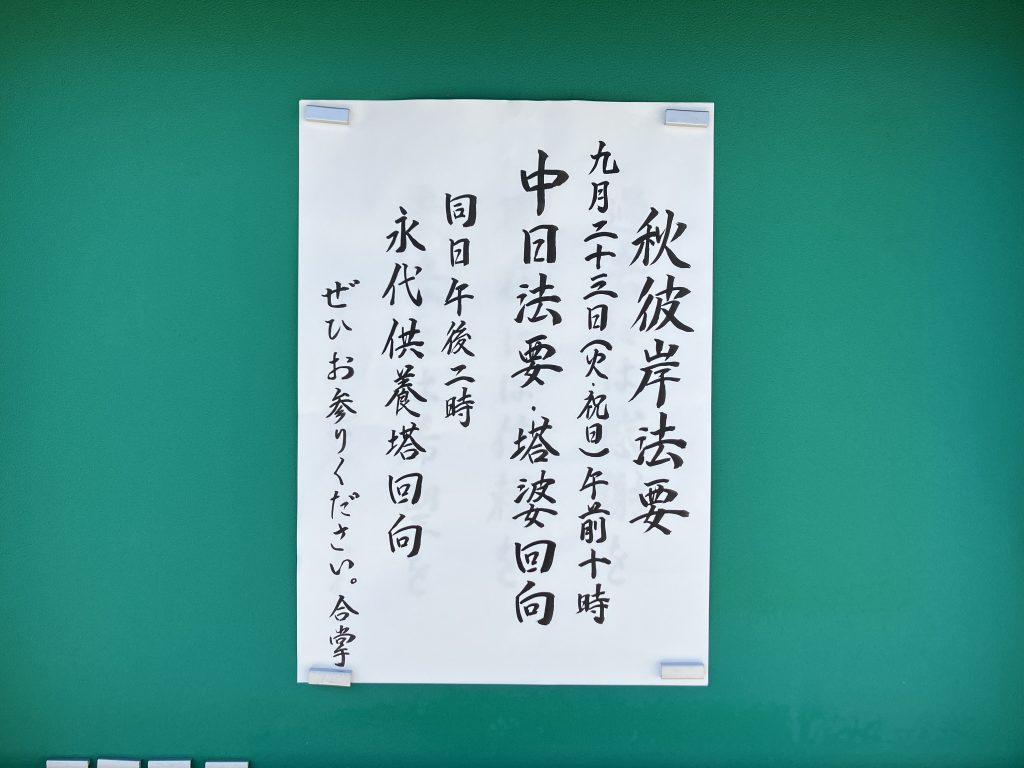 秋彼岸法要
九月二十三日(火・祝日)午前十時
中日法要・塔婆回向
同日午後二時
永代供養塔回向
ぜひお参りください。合掌